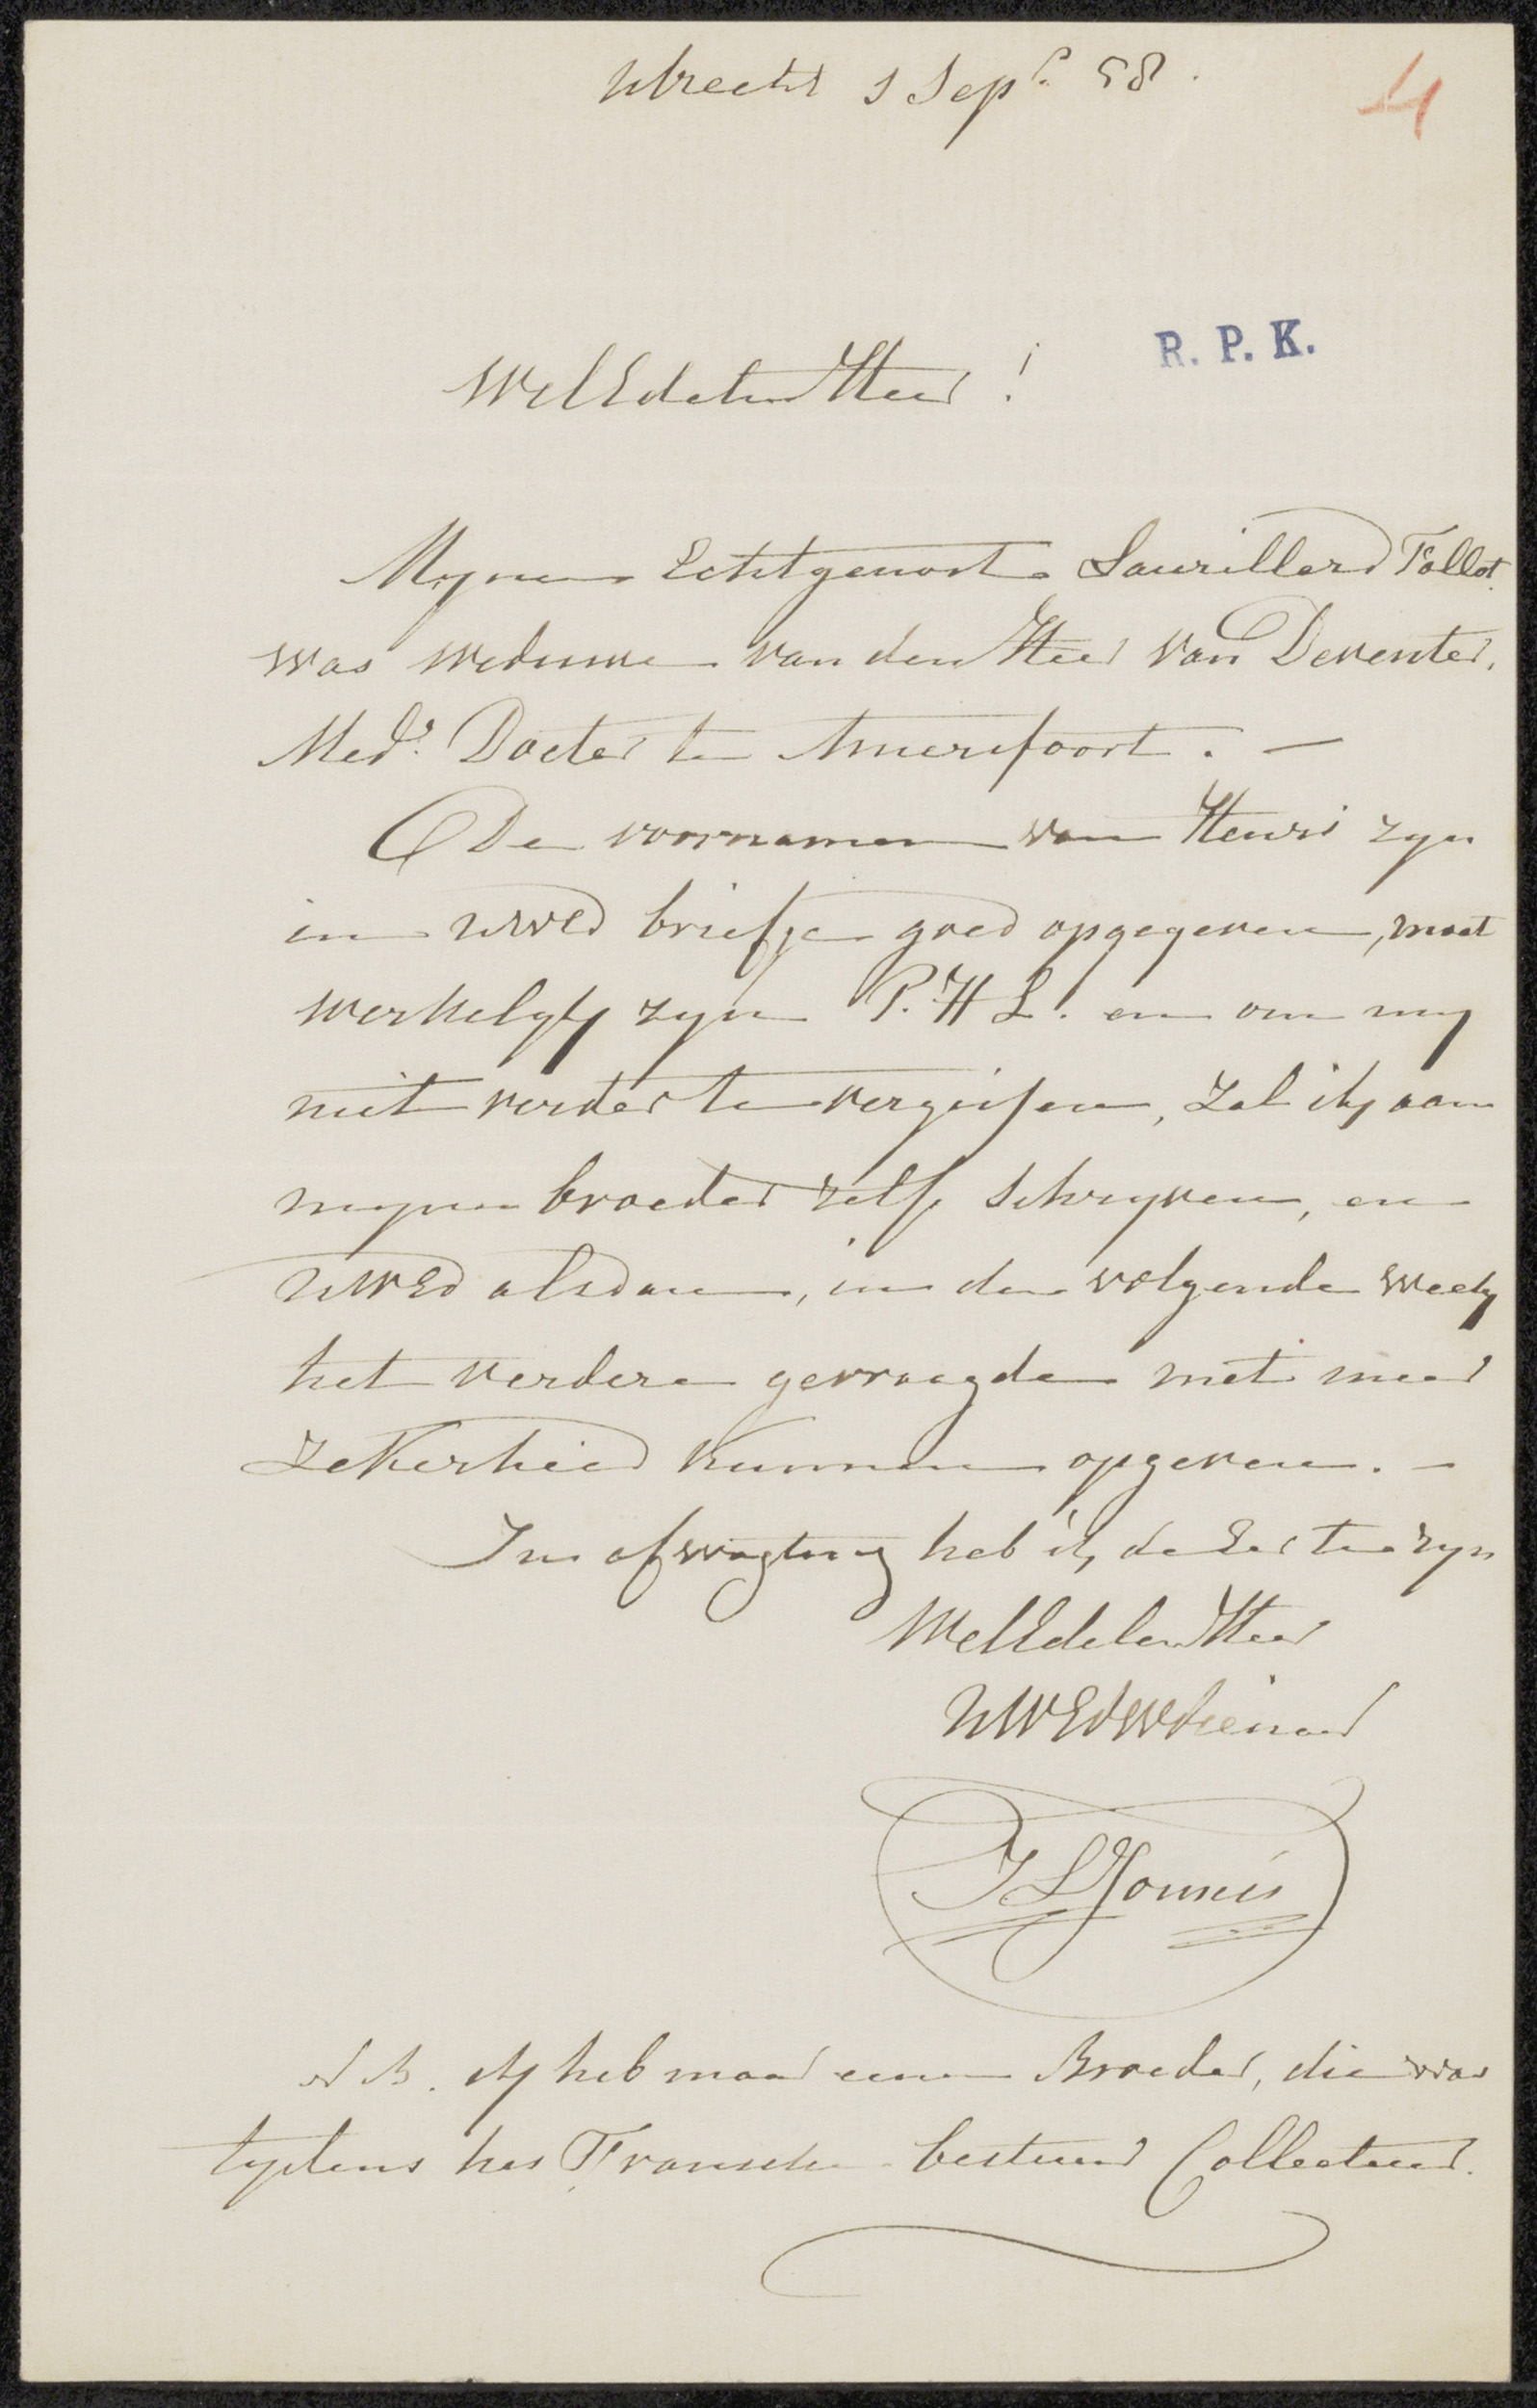 Utrecht 1 Sept. 58.
4
R. P. K.
WelEdelen Heer!
Mijne Echtgenoot Saurillard Fallot
was weduwe van den Heer van Deventer,
Medr. Docter te Amersfoort. —
De voornamen van Henri zyn
in uwed briefje goed opgegeven, moet
werkelyk zyn P. H L. en om my
niet verder te vergissen, zal ik aan
mynen broeder zelf schryven, en
UWEd alsdan, in de volgende week
het verdere gevraagde met meer
zekerheid kunnen opgeven. —
In afwagting heb ik de Eer te zyn
WelEdelen Heer
UWEdWDienaar
N B. ik heb maar eenen Broeder, die was
tydens het Fransche bestuur Collecteur.